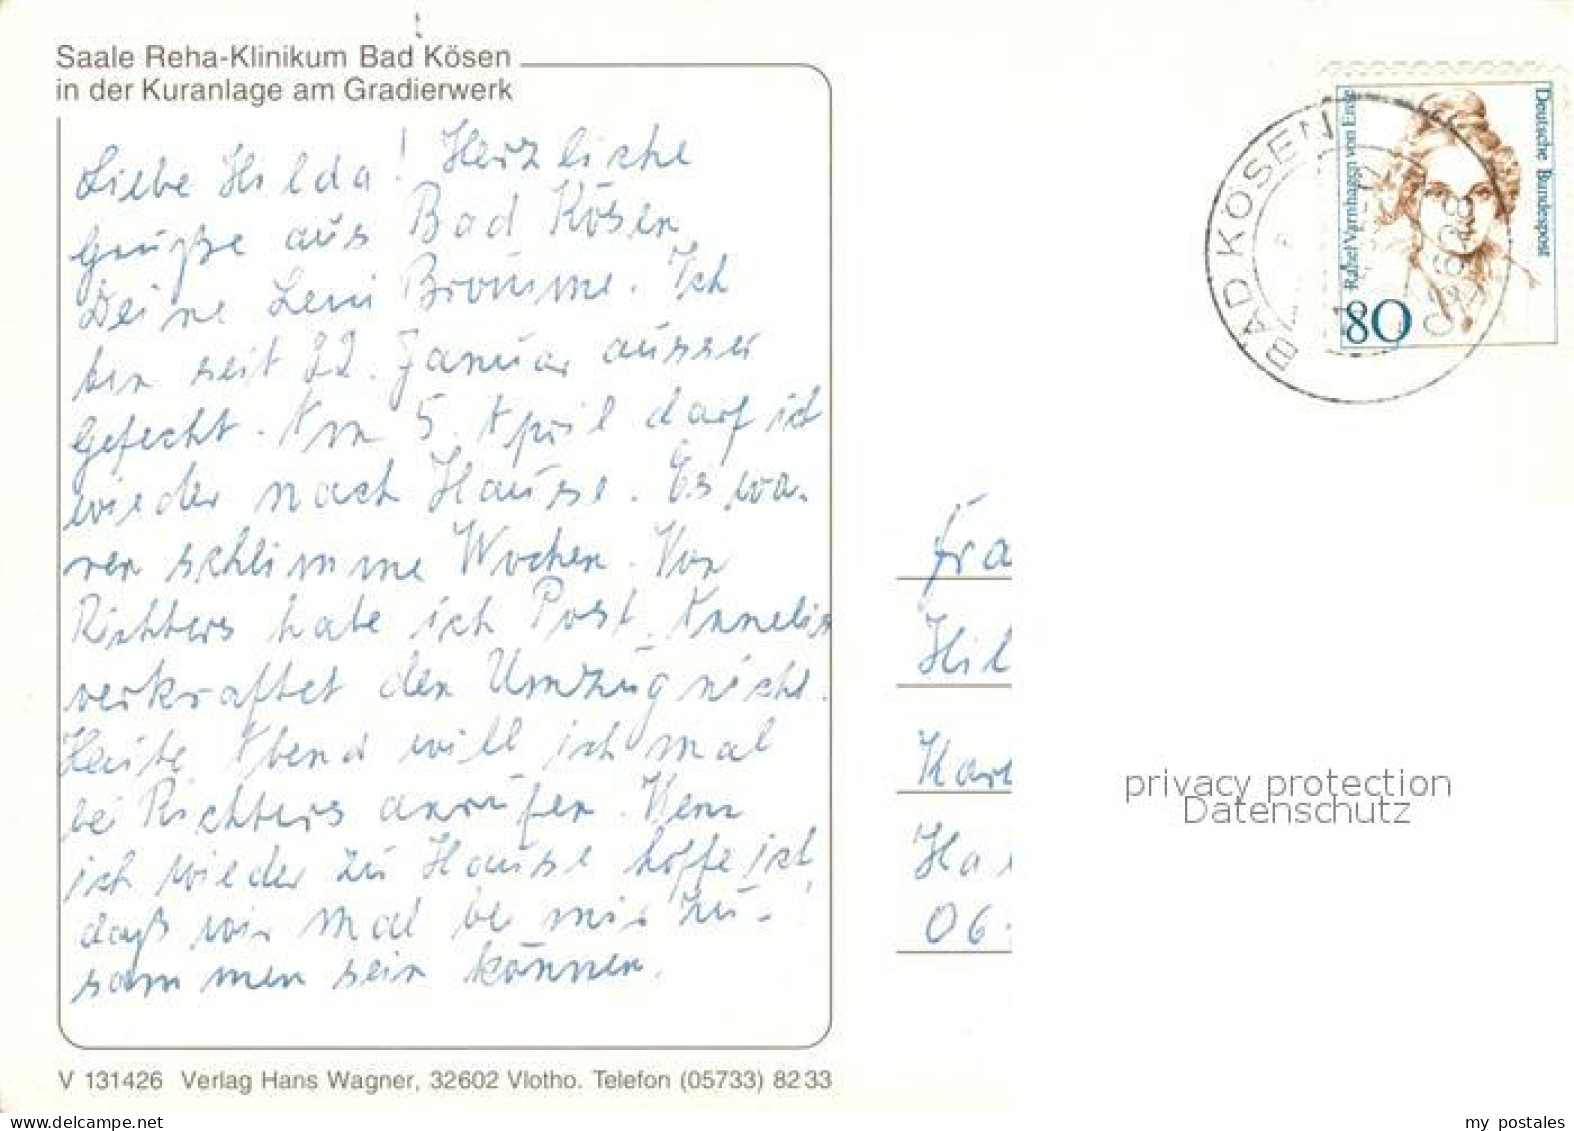 Saale Reha-Klinikum Bad Kösen
in der Kuranlage am Gradierwerk
Liebe Hilda! Herzliche
Grüße aus Bad Kösen
Deine Leni Broumme. Ich
bin seit 22. Januar ausser
Gefecht. Am 5. April darf ich
wieder nach Hause. Es wa-
ren schlimme Wochen. Von
Richters habe ich Post. Annelis
verkraftet den Umzug nicht.
Heute Abend will ich mal
bei Richters anrufen. Wenn
ich wieder zu Hause hoffe ich
daß wir mal bei mir zu-!
sammen sein können.
V 131426 Verlag Hans Wagner, 32602 Vlotho. Telefon (05733) 8233
Deutsche Bundespost
Rahel Varnhagen von Ense
80
BAD KÖSEN
06628
Fra
Hil
Kar
Hal
06
privacy protection
Datenschutz
my postales